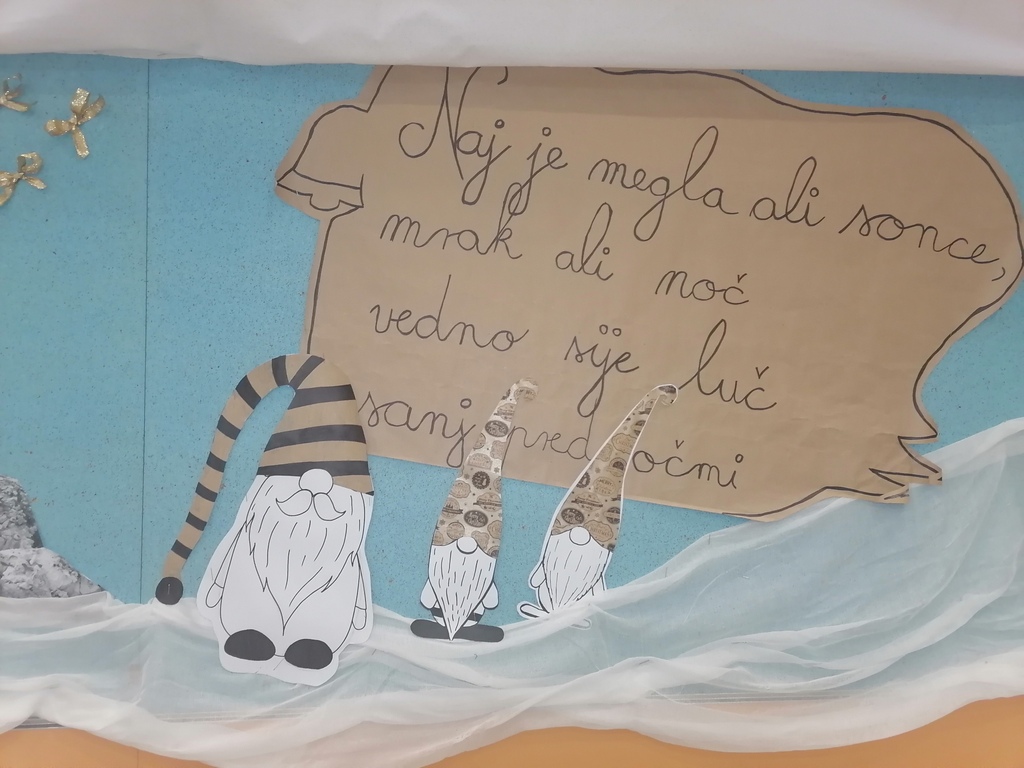 Naj je megla ali sonce,
mrak ali noč
vedno sije luč
sanj pred očmi